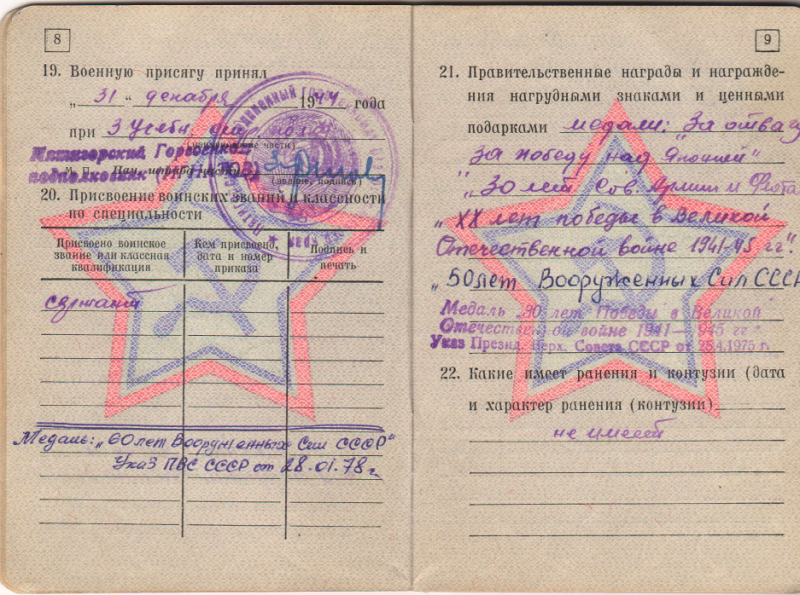 8
19. Военную присягу принял
„ 31 “ декабря 1944 года
при 3 Учебн.
(наименование части)
Пятигорский Горвоенком
подполковник
(звание, подпись)
20. Присвоение воинских званий и классности
по специальности
Присвоено воинское звание или классная квалификация
Кем присвоено, дата и номер приказа
Подпись и печать
сержант
Медаль: „60 лет Вооруженных Сил СССР“
Указ ПВС СССР от 28.01.78 г.
9
21. Правительственные награды и награжде-
ния нагрудными знаками и ценными
подарками медали: „За отвагу
За победу над Японией“
„30 лет Сов. Армии и Флота
„XX лет победы в Великой
Отечественной войне 1941-45 гг“.
„50 лет Вооруженных Сил СССР
Медаль „30 лет Победы в Великой
Отечественной войне 1941—1945 гг“
Указ Презид. Верх. Совета СССР от 25.4.1975 г.
22. Какие имеет ранения и контузии (дата
и характер ранения (контузии)
не имеет